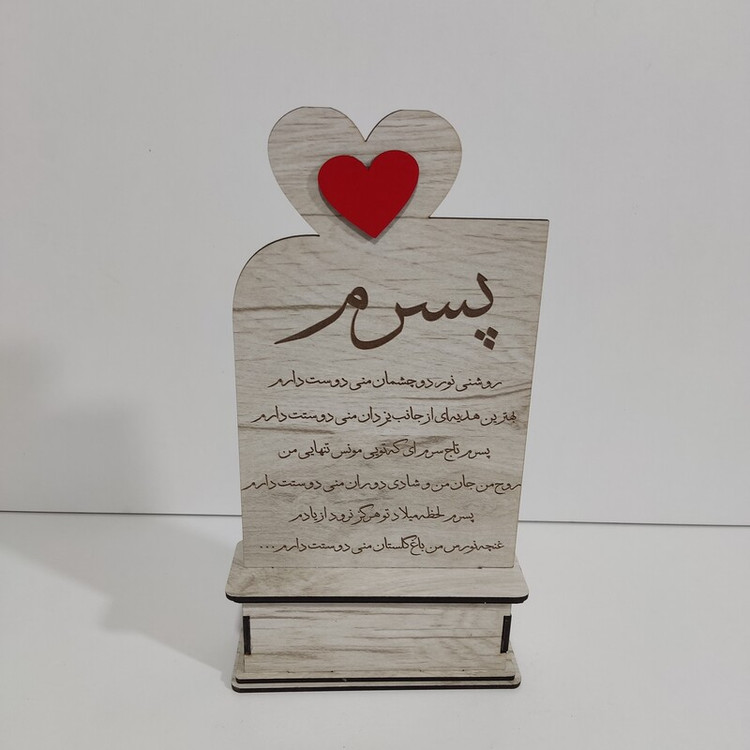 پسرم
روشنی نور دو چشمان منی دوست دارم
بهترین هدیه‌ای از جانب یزدان منی دوستت دارم
پسرم تاج سرم ای که تویی مونس تنهایی من
روح من جان من و شادی دوران منی دوستت دارم
پسرم لحظه میلاد تو هرگز نرود از یادم
غنچه نورس من باغ گلستان منی دوستت دارم ...